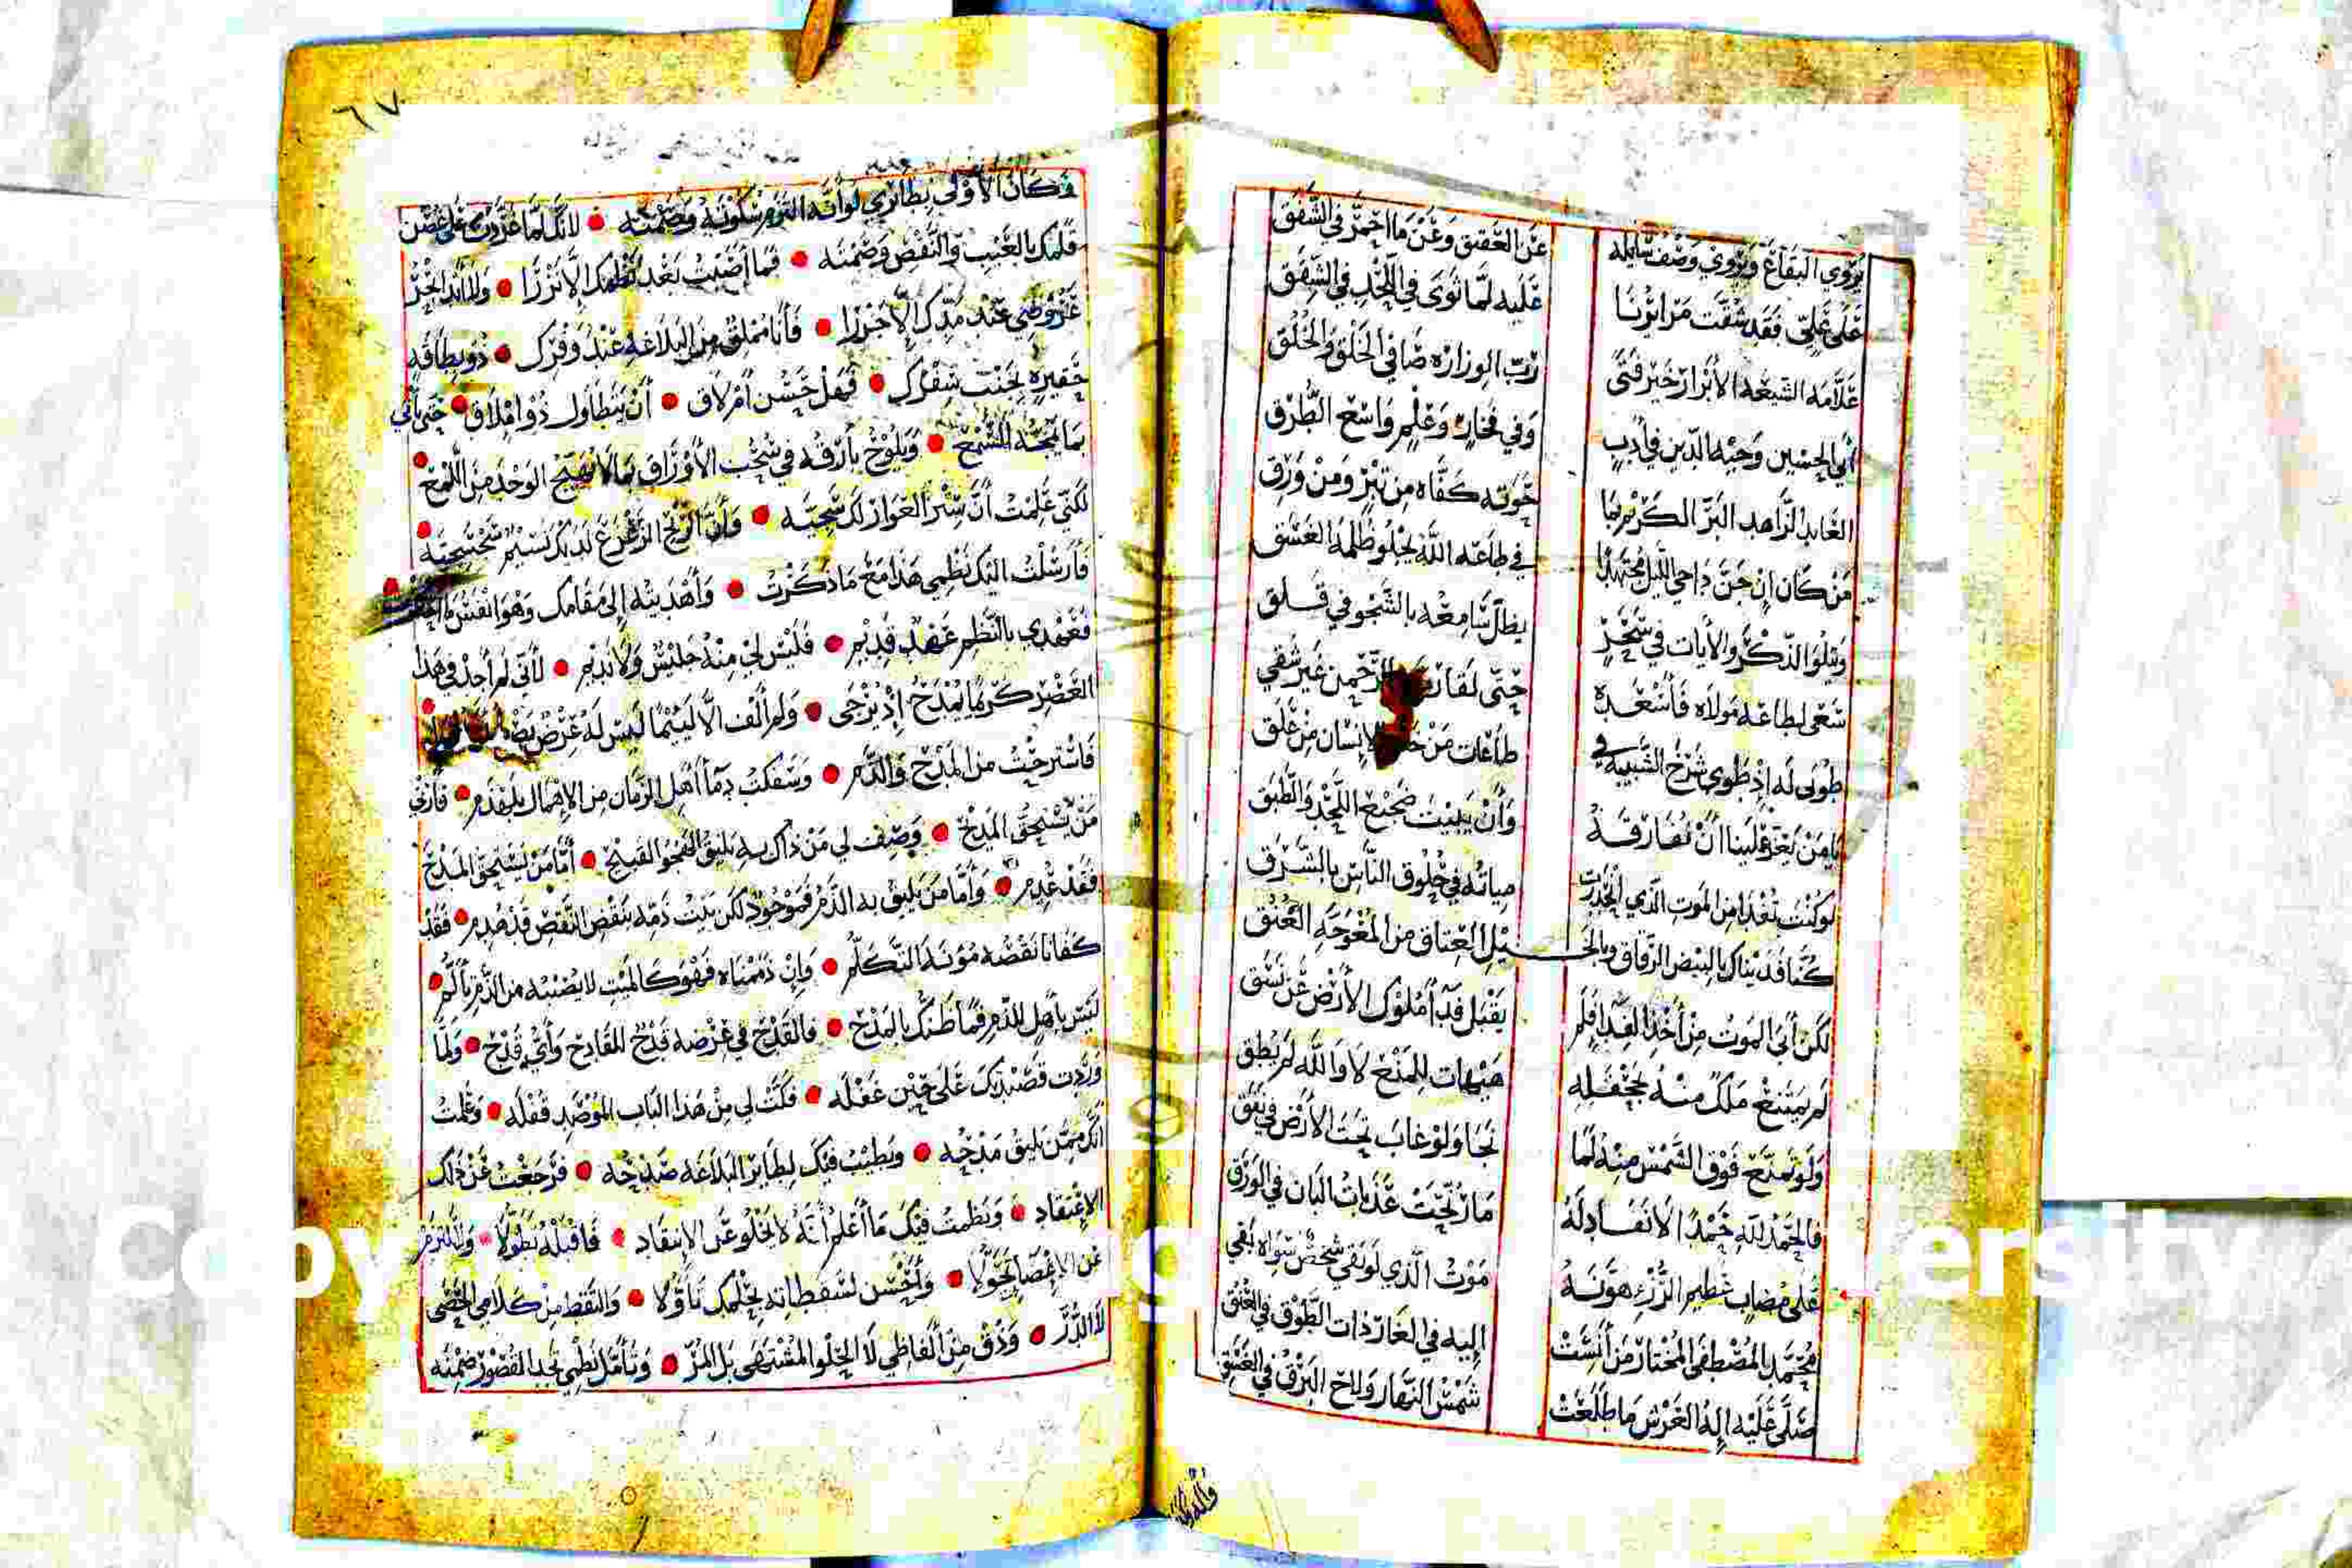 يروي البقاع ويروي وصف سايله عن العقيق وعن ما احمر في الشفق
على علي فقد شقت مرائرنا عليه لما ثوى في اللحد في الشفق
علامه الشيعه الأبرار خير فتى رب الوزاره صافي الخلق والخلق
أبي الحسين وجيه الدين في أدب وفي فخار وعلم واسع الطرق
العابد الزاهد البر الكريم بما حوته كفاه من تبر ومن ورق
من كان إن جن داجي الليل مجتهدا في طاعه الله يجلو ظلمه الغسق
ويتلو الذكر والأيات في سحر يظل سامعه بالشجو في قلق
سعى لطاعه مولاه فأسعده حتى لقا الرحمن غير شقي
طوبى له إذ طوى شرخ الشبيبه في طاعات من الإنسان من علق
يا من يعز علينا ان نفارقه وأن يبيت ضجيع اللحد والطبق
لو كنت تفدا من الموت الذي انحدرت مياته في حلوق الناس بالشرق
كنا فديناك بالبيض الرقاق وبالخيل العتاق من المغوجه العنق
لكن أبى الموت من أخذ الفدا فلم يقبل فدآ ملوك الأرض عن نسق
لم يمتنع ملك منه بجحفله هيهات للمنع لا والله لم يطق
ولو تمنع فوق الشمس منه لما نجا ولو غاب تحت الأرض في نفق
فالحمد لله حمدا لا نفاد له ما رنحت عذبات البان في الورق
على مصاب عظيم الرزء هونه موت الذي لو بقي شخص سواه بقي
محمد المصطفى المختار من أنست إليه في الغار ذات الطوق في العنق
صلى عليه إله العرش ما طلعت شمس النهار ولاح البرق في الغسق
٦٧
وكان الأولى بطائري لو أنه التزم سكوته وصمته • لانك لما غردت على غصن
قلمك بالعيب والنقص وصمته • فما أصبت بعد نظمك إلا نزرا •
عروضي عند مدك إلا جزرا • فأنا مملق من البلاغه عند وفرك • ذو بطاقه
حقيره بجنب سفرك • فهل حسن أم لاق • أن يتطاول ذو املاق • حتى يأتي
بما يمجه السمع • ويلوح بأرقه في سحب الأوراق بما لا تفتح الوحد من اللمع •
لكني علمت أن ستر العوار لك سجيه • وأن الريح الزعزع لديك نسيم سجسجيه •
فأرسلت اليك نظمي هذا مع ما ذكرت • وأهديته إلى مقامك وهو انفس ما
فعهدي بالنظم عهد قديم • فليس لي منه جليس ولا نديم • لأني لم أجد في هذا
العصر كريما يمدح إذ يرجى • ولم ألف الا لئيما ليس له عرض
فاسترحت من المدح والذم • وسفكت دمآ أهل الزمان من الإهمال بلا دم • فأرني
من يستحق المدح • وصف لي من ذاك به يليق الهجو القبيح • أما من يستحق المدح
فقد عدم • وأما من يليق به الذم فموجود لكن بيت ذمه بنقض النقص قد هدم • فقد
كفانا نقصه مؤنه التكلم • وإن ذممناه فهو كالميت لا يصيبه من الذم تألم •
ليس بأهل للذم فما ظنك بالمدح • فالقدح في عرضه قدح للقادح وأي قدح • ولما
وردت قصيدتك على حين غفله • فكت لي من هذا الباب الموصد قفله • وعلمت
انك ممن يليق مدحه • ويطيب فيك لطائر البلاغه صدحه • فرجعت عن ذلك
الاعتقاد • ونظمت فيك ما أعلم أنه لا يخلو عن الإنتقاد • فاقبله تطولا •
عن الإغضا تحولا • وأحسن لسقطاته بحلمك تأولا • والتقط من كلامي الحصى
لا الدر • وذق من ألفاظي لا الحلو المشتهى بل المر • وتأمل نظمي تجد القصور ضمنه